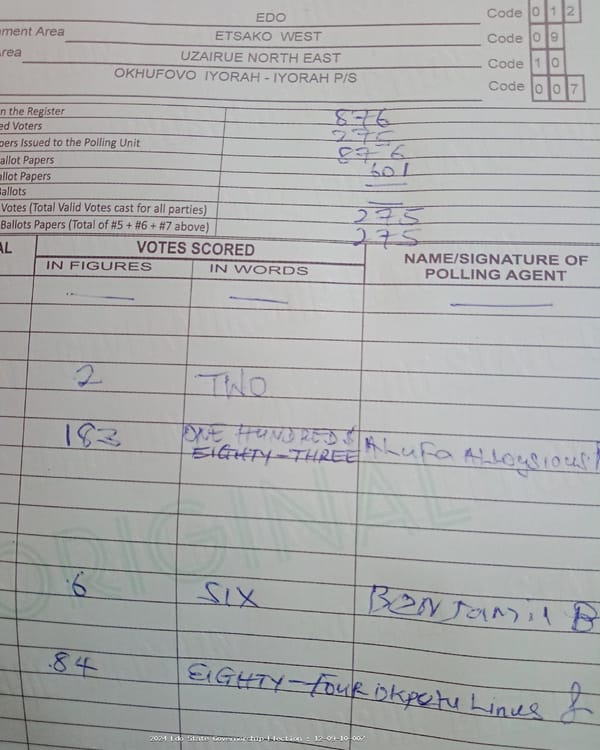 EDO Code 0 1 2
ment Area ETSAKO WEST Code 0 9
Area UZAIRUE NORTH EAST Code 1 0
OKHUFOVO IYORAH - IYORAH P/S Code 0 0 7
n the Register 876
ed Voters 275
pers Issued to the Polling Unit 876
allot Papers 601
allot Papers —
Ballots —
Votes (Total Valid Votes cast for all parties) 275
Ballots Papers (Total of #5 + #6 + #7 above) 275
AL VOTES SCORED NAME/SIGNATURE OF
IN FIGURES IN WORDS POLLING AGENT
2 TWO
183 ONE HUNDRED &
EIGHTY-THREE ALUFA ALLOYSIOUS
ORIGINAL
6 SIX BENJAMIN B
84 EIGHTY-FOUR
2024 Edo State Governorship Election : 12-09-10-007